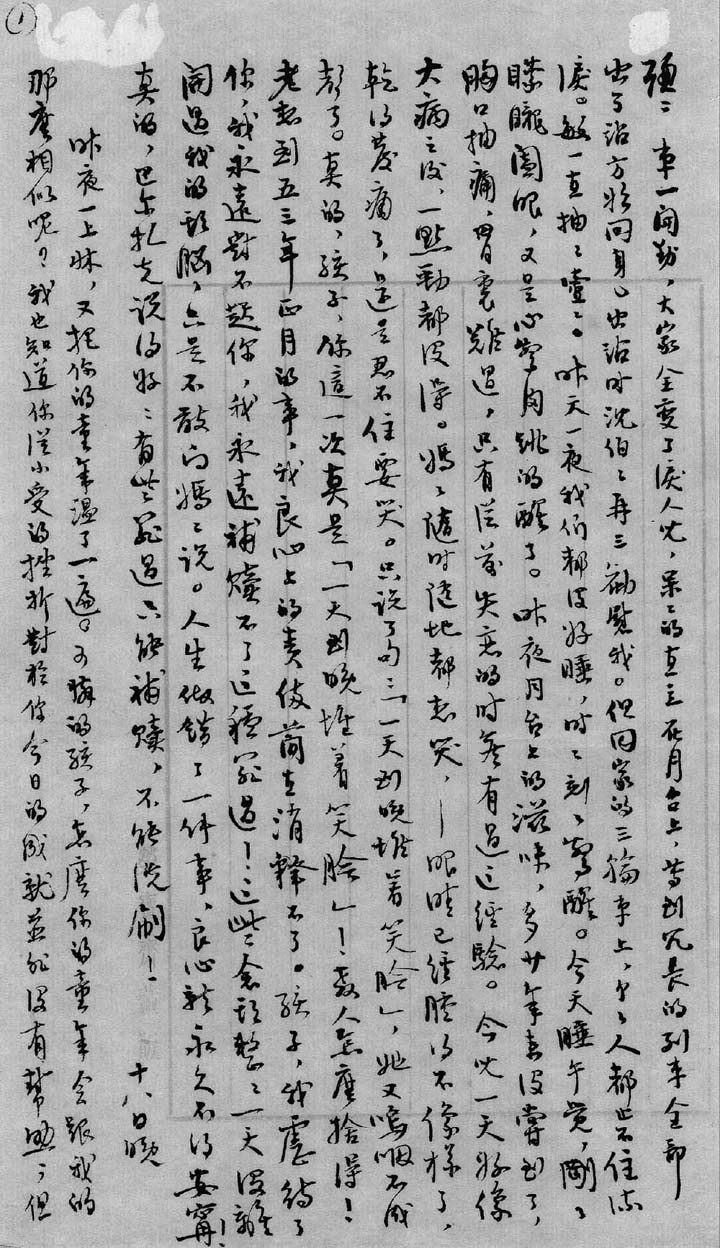 1
聰：車一開動，大家全變了淚人兒，呆呆的直立在月台上，等到冗長的列車全部
出了站方始回身。出站時沈伯伯再三勸慰我。但回家的三輪車上，个个人都止不住流
淚。敏一直抽抽噎噎。昨天一夜我們都沒好睡，時時刻刻驚醒。今天睡午覺，剛剛
矇矓闔眼，又是心驚肉跳的醒了。昨夜月台上的滋味，多少年來沒嘗到了，
胸口抽痛，胃裏難過，只有從前失戀的時候有過這經驗。今兒一天好像
大病之後，一點勁都沒得。媽媽隨時隨地都想哭，—眼睛已經腫得不像樣了，
乾得發痛了，還是忍不住要哭。只說了句：「一天到晚堆着笑臉」，她又嗚咽不成
聲了。真的，孩子，你這一次真是「一天到晚堆着笑臉」！教人怎麼捨得！
老想到五三年正月的事，我良心上的責備簡直消釋不了。孩子，我虐待了
你，我永遠對不起你，我永遠補贖不了這種罪過！這些念頭整整一天沒離
開過我的頭腦，只是不敢向媽媽說。人生做錯了一件事，良心就永久不得安寧！
真的，巴尔扎克說得好：有些罪過只能補贖，不能洗刷！
十八日晚
昨夜一上牀，又把你的童年溫了一遍。可憐的孩子，怎麼你的童年會跟我的
那麼相似呢？我也知道你從小受的挫折對於你今日的成就並非沒有幫助；但